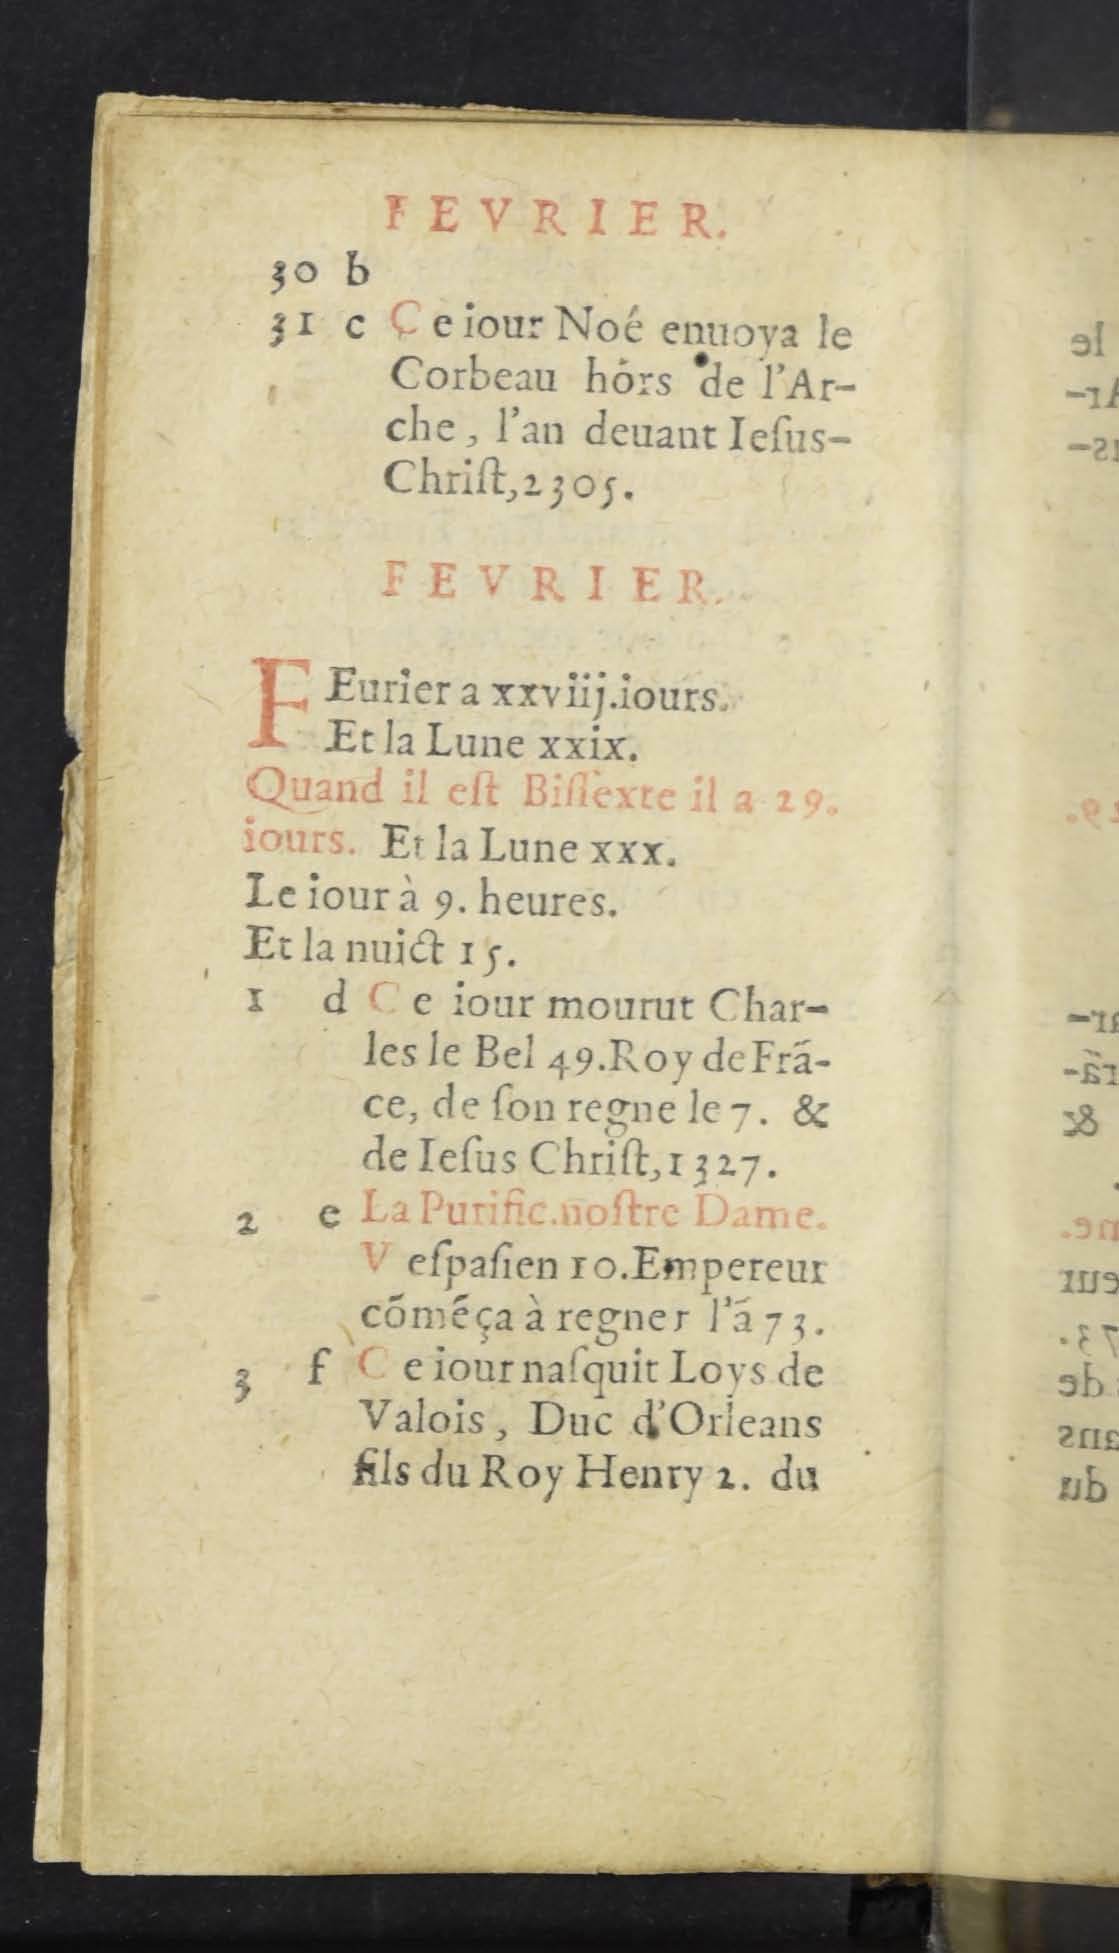 FEVRIER.
30 b
31 c Ce iour Noé enuoya le
Corbeau hors de l'Ar-
che, l'an deuant Ieſus-
Chriſt, 2305.
FEVRIER.
FEurier a xxviij. iours.
Et la Lune xxix.
Quand il eſt Biſſexte il a 29.
iours. Et la Lune xxx.
Le iour à 9. heures.
Et la nuict 15.
1 d Ce iour mourut Char-
les le Bel 49. Roy de Frã-
ce, de ſon regne le 7. &
de Ieſus Chriſt, 1327.
2 e La Purific. noſtre Dame.
Veſpaſien 10. Empereur
cõmẽça à regner l'ã 73.
3 f Ce iour naſquit Loys de
Valois, Duc d'Orleans
fils du Roy Henry 2. du